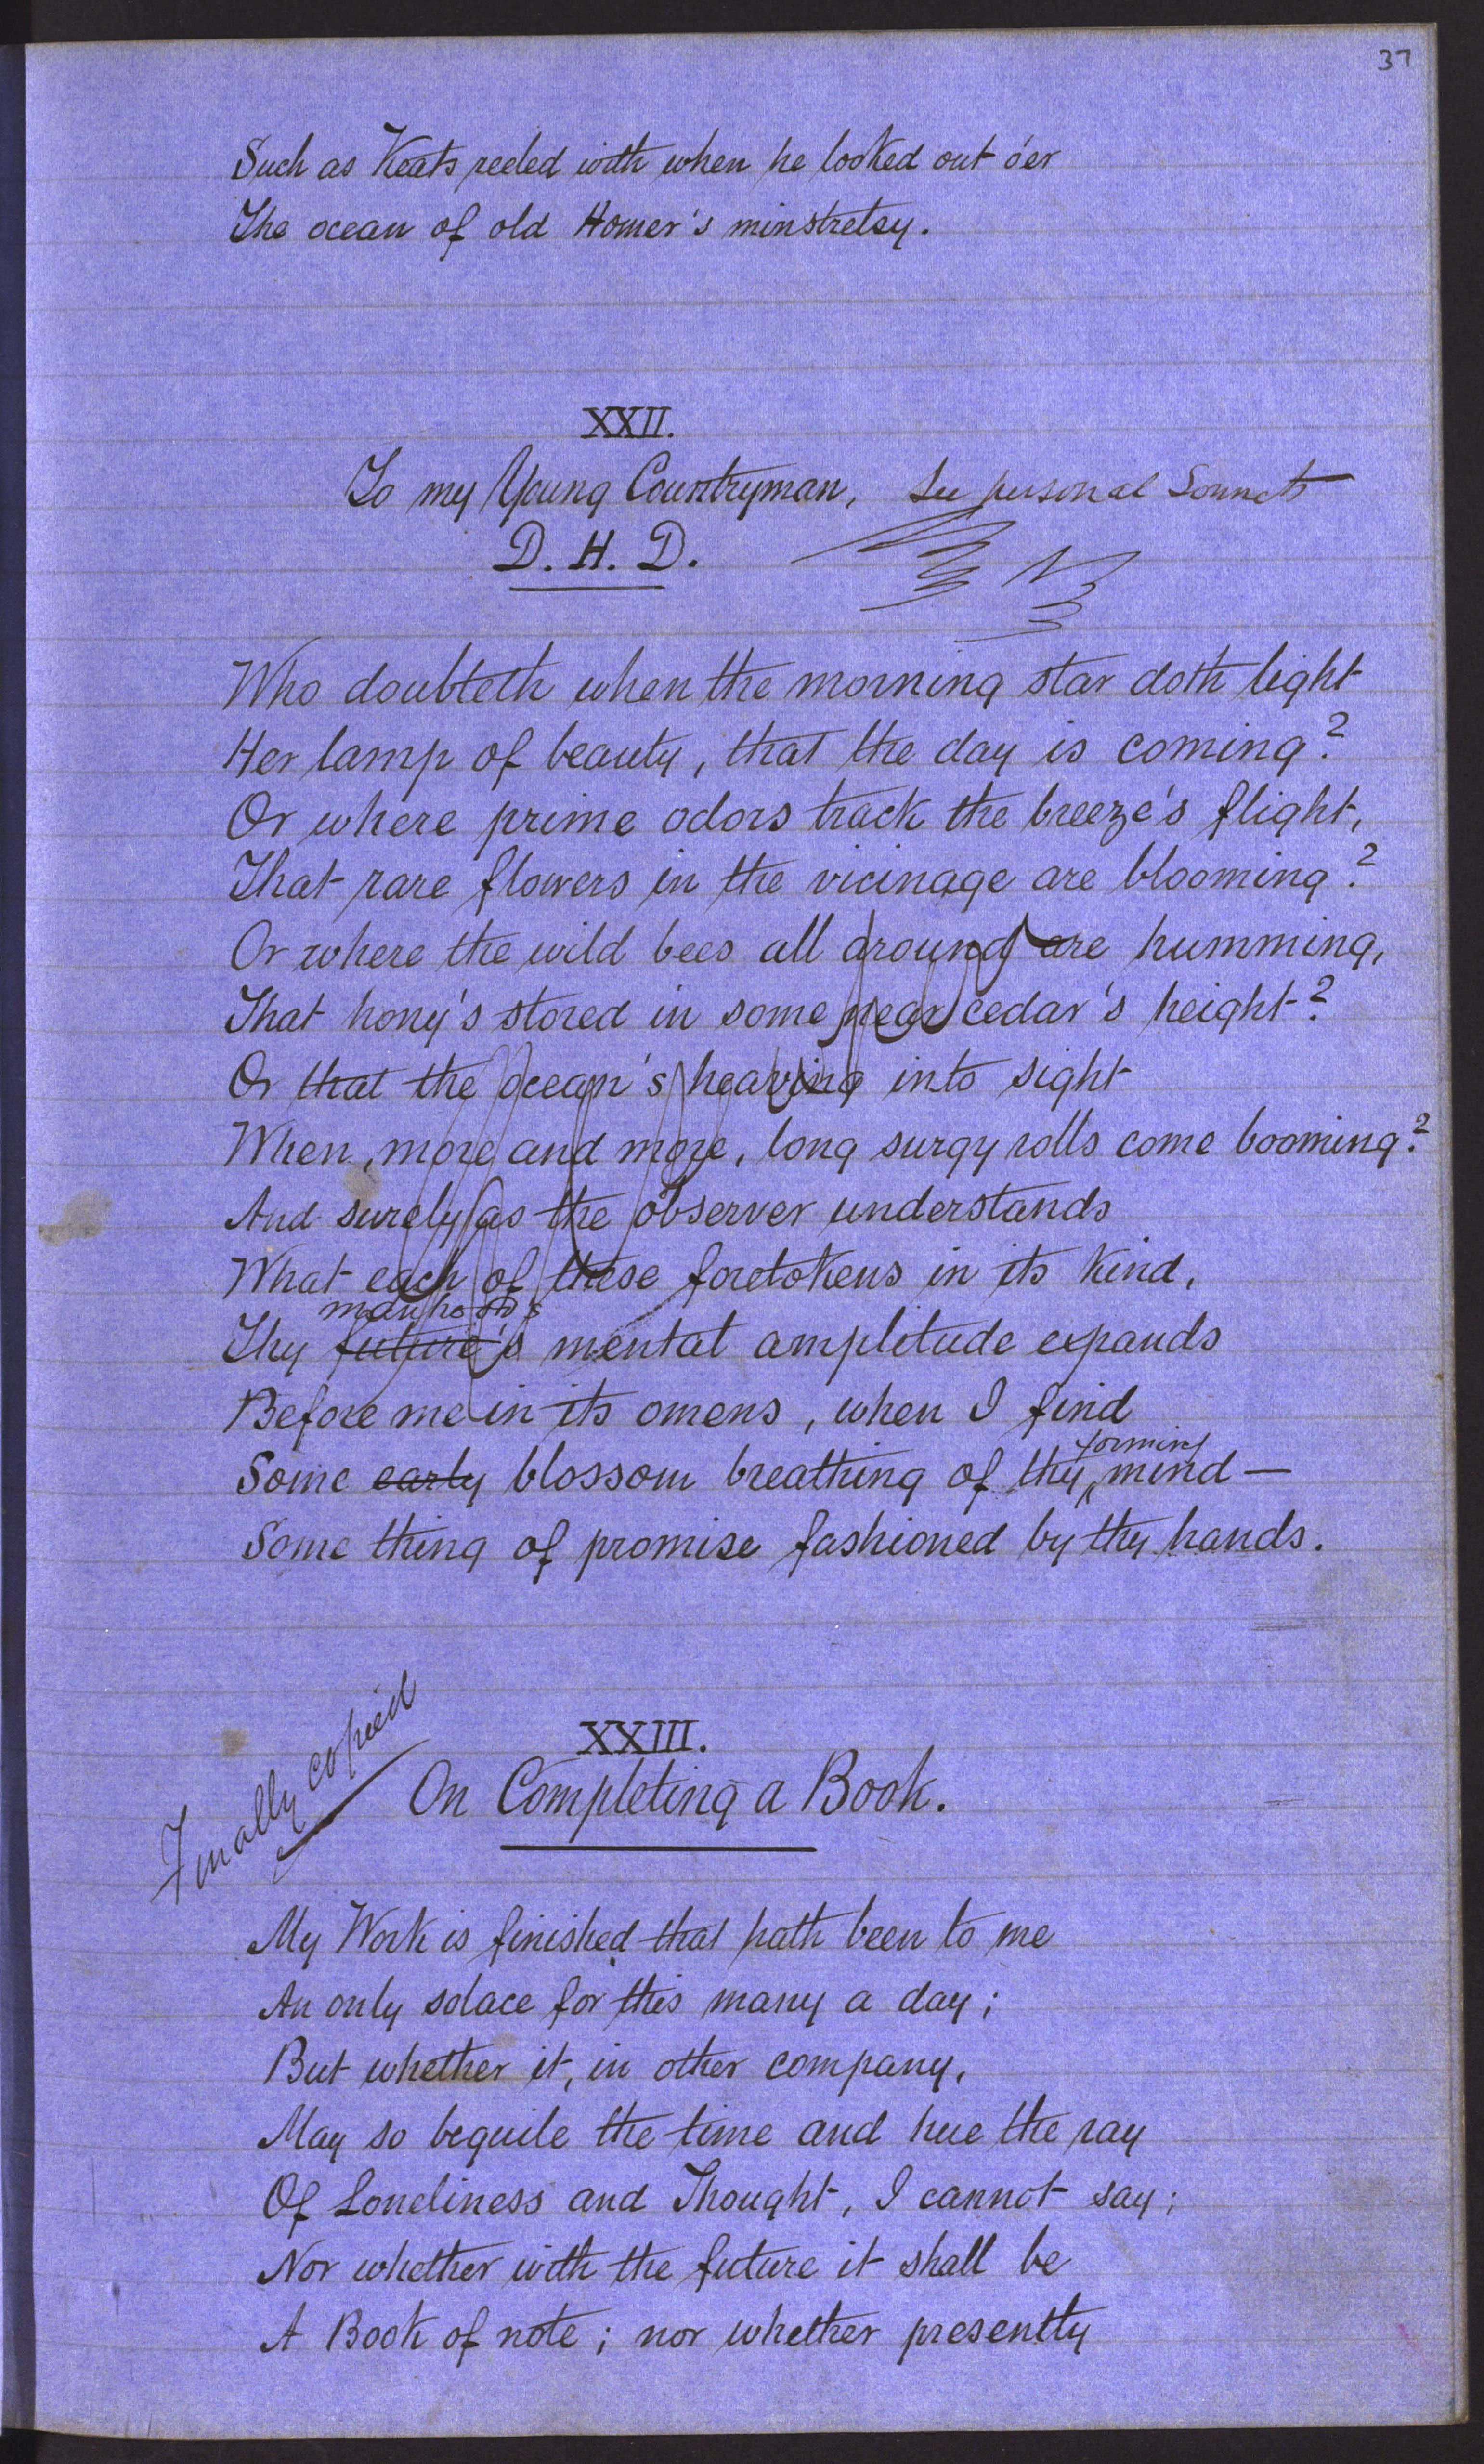 37
Such as Keats reeled with when he looked out o'er
The ocean of old Homer's minstrelsy.
XXII.
To my Young Countryman, See personal Sonnets
D. H. D.
Who doubteth when the morning star doth light
Her lamp of beauty, that the day is coming?
Or where prime odors track the breeze's flight,
That rare flowers in the vicinage are blooming?
Or where the wild bees all around are humming,
That hony's stored in some near cedar's height?
Or that the ocean's heaving into sight
When, more and more, long surgy rolls come booming?
And surely as the observer understands
What each of these foretokens in its kind,
manhood's
Thy future's mental amplitude expands
Before me in its omens, when I find
forming
Some early blossom breathing of thy mind —
Some thing of promise fashioned by thy hands.
Finally copied
XXIII.
On Completing a Book.
My Work is finished that hath been to me
An only solace for this many a day;
But whether it, in other company,
May so beguile the time and hue the ray
Of Loneliness and Thought, I cannot say;
Nor whether with the future it shall be
A Book of note; nor whether presently